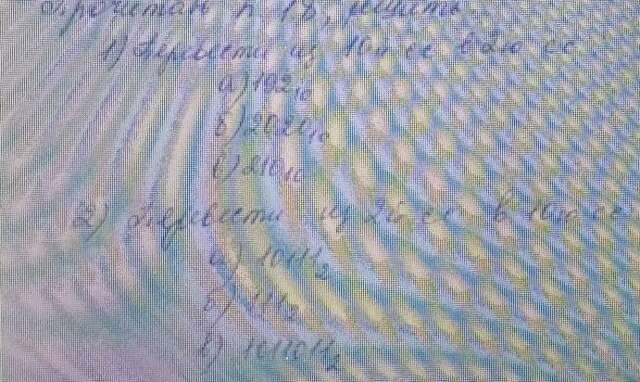 Прочитать п 18, решить
1) Перевести из 10й сс в 2ю сс.
а) 192₁₀
б) 2020₁₀
в) 210₁₀
2) Перевести из 2й сс в 10ю сс
а) 1011₂
б) 111₂
в) 1011011₂